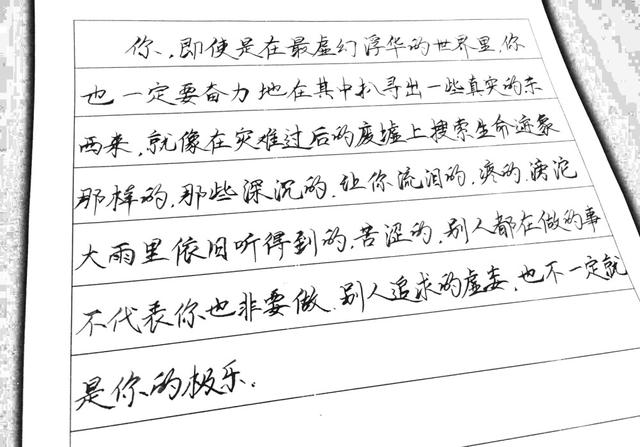 你,即使是在最虚幻浮华的世界里,你
也一定要奋力地在其中扒寻出一些真实的东
西来,就像在灾难过后的废墟上搜索生命迹象
那样的,那些深沉的,让你流泪的,疼的,滂沱
大雨里依旧听得到的,苦涩的,别人都在做的事
不代表你也非要做,别人追求的虚妄,也不一定就
是你的极乐.